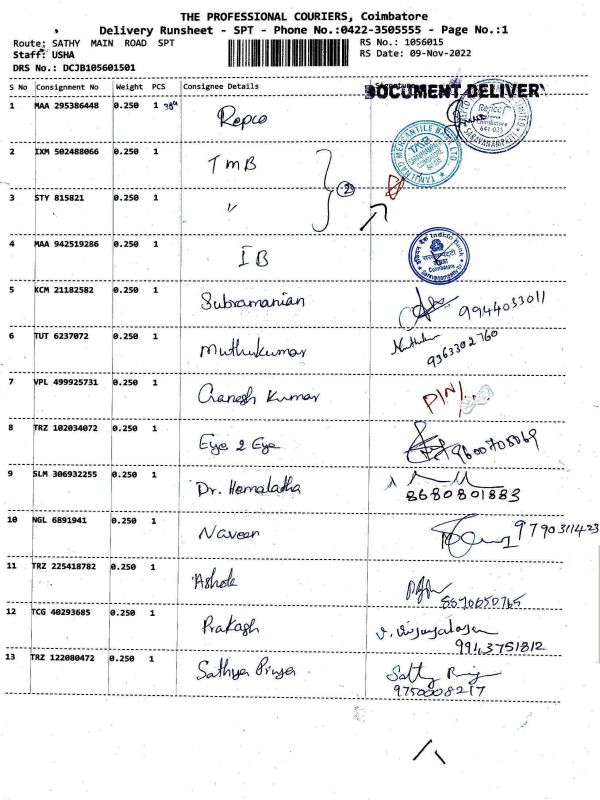 THE PROFESSIONAL COURIERS, Coimbatore
Delivery Runsheet - SPT - Phone No.:0422-3505555 - Page No.:1
Route: SATHY MAIN ROAD SPT RS No.: 1056015
Staff: USHA RS Date: 09-Nov-2022
DRS No.: DCJB105601501
S No Consignment No Weight PCS Consignee Details
DOCUMENT DELIVERY
1 MAA 295386448 0.250 1 Repco
2 IXM 502488066 0.250 1 TMB
3 STY 815821 0.250 1 "
②
4 MAA 942519286 0.250 1 IB
5 KCM 21182582 0.250 1 Subramanian 9944033011
6 TUT 6237072 0.250 1 Muthukumar 9363302760
7 VPL 499925731 0.250 1 Ganesh Kumar PIN/
8 TRZ 102034072 0.250 1 Eye 2 Eye 9600708069
9 SLM 306932255 0.250 1 Dr. Hemaladha 8680801883
10 NGL 6891941 0.250 1 Naveen 9790311423
11 TRZ 225418782 0.250 1 Ashok 8870650765
12 TCG 40293685 0.250 1 Prakash
9943751812
13 TRZ 122080472 0.250 1 Sathya Priya
9750008217